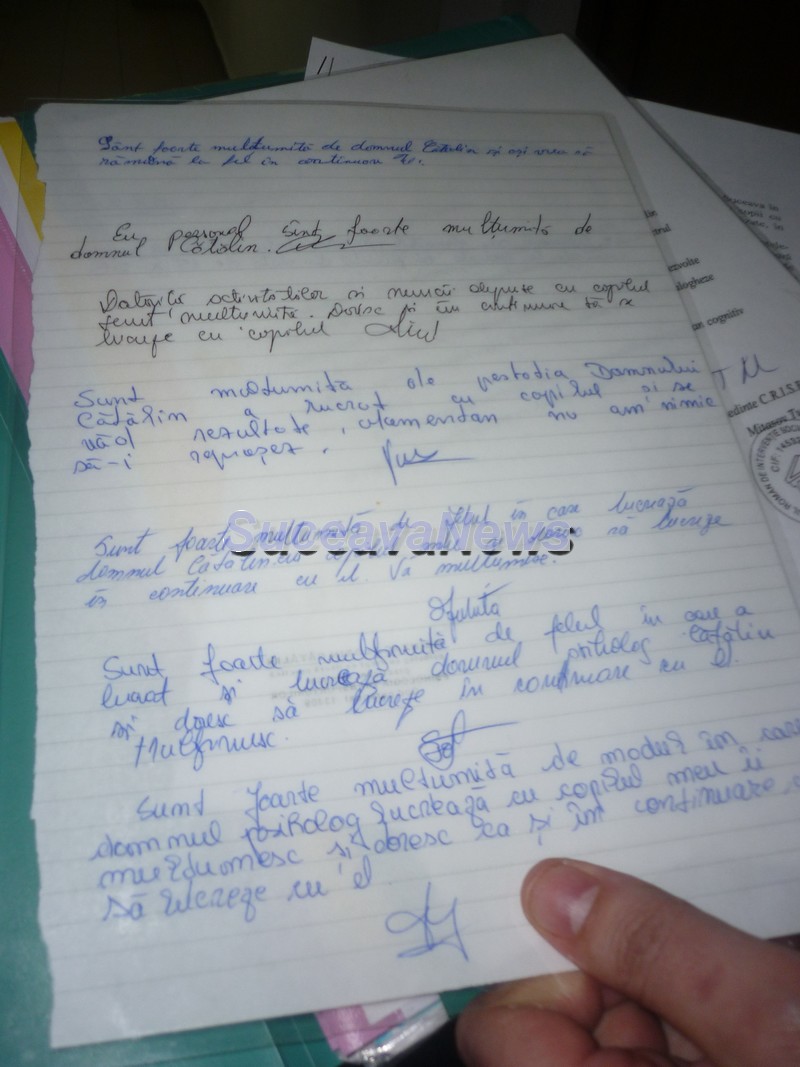 11
Sânt foarte multumită de domnul Cătălin și ași vrea să
rămână la fel în continuare
Eu personal sînt foarte mulțumită de
domnul Cătălin.
Datorită activitatilor si muncii depuse cu copilul
sunt multumita. Doresc și în continuare să se
lucreze cu copilul
Sunt multumită de Domnului
Cătălin a lucrat cu copilul si se
văd rezultate, nu am nimic
să-i reproșez.
Sunt foarte multumită de felul în care lucrează
domnul Cătălin cu copilul meu și doresc să lucreze
în continuare cu el. Va multumesc.
SuceavaNews
Sunt foarte mulțumită de felul în care a
lucrat și lucrează domnul psiholog Cătălin
și doresc să lucreze în continuare cu el.
Mulțumesc.
Sumt foarte multumită de modul în care
domnul psiholog lucrează cu copilul meu îi
multumesc și doresc ca și în continuare
să lucreze cu el
cognitiv
C.R.I.S.P.